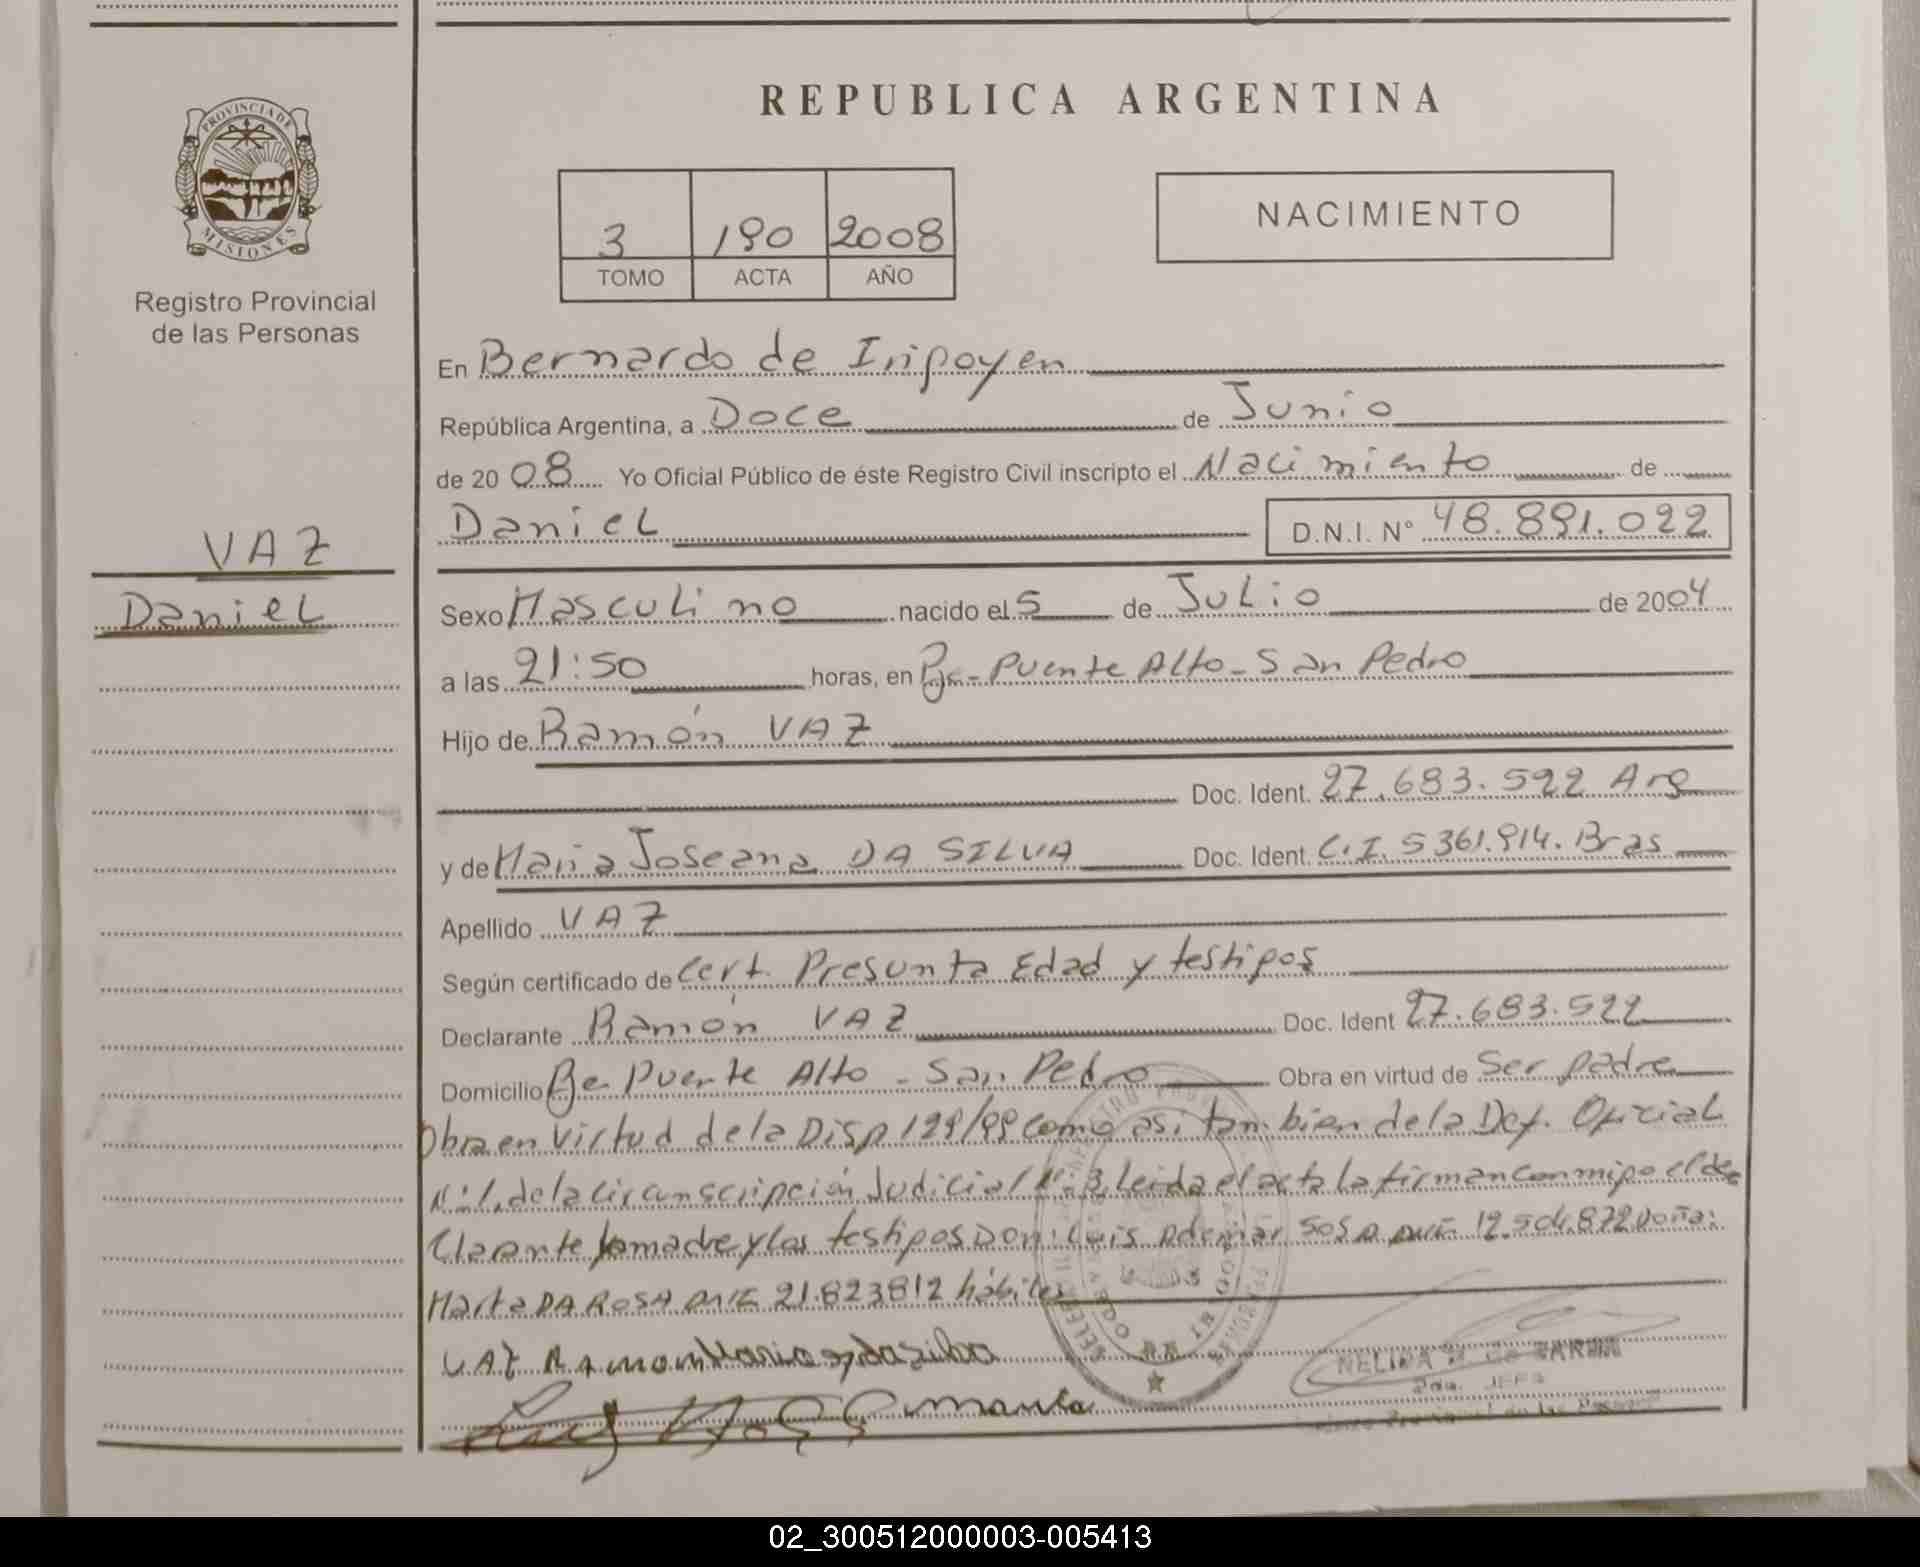 REPUBLICA ARGENTINA
PROVINCIA DE
MISIONES
Registro Provincial
de las Personas
3 190 2008
TOMO ACTA AÑO
NACIMIENTO
En Bernardo de Iripoyen
República Argentina, a Doce de Junio
de 20 08 Yo Oficial Público de éste Registro Civil inscripto el Nacimiento de
Daniel D.N.I. N° 48.891.022
VAZ
Daniel
Sexo Masculino nacido el 5 de Julio de 2004
a las 21:50 horas, en Pje - Puente Alto - San Pedro
Hijo de Ramón VAZ
Doc. Ident. 27.683.522 Arg
y de Maria Joseana DA SILVA Doc. Ident. C.I. 5361.914. Bras
Apellido VAZ
Según certificado de Cert. Presunta Edad y testipos
Declarante Ramón VAZ Doc. Ident 27.683.522
Domicilio Pje Puente Alto - San Pedro Obra en virtud de Ser padre
Obra en Virtud de la Disp 129/99 como asi tan bien de la Def. Oficial
N:1, de la Circunscripción Judicial N: 3, leida el acta la firman conmipo el de
Clarante la madre y los testipos Don: Luis Ademar SOSA 12.504.872 Doña:
Marta DA ROSA 21.823812 hábiles
VAZ Ramon Maria dasilva
marta
NELIDA
JEFE
02_300512000003-005413